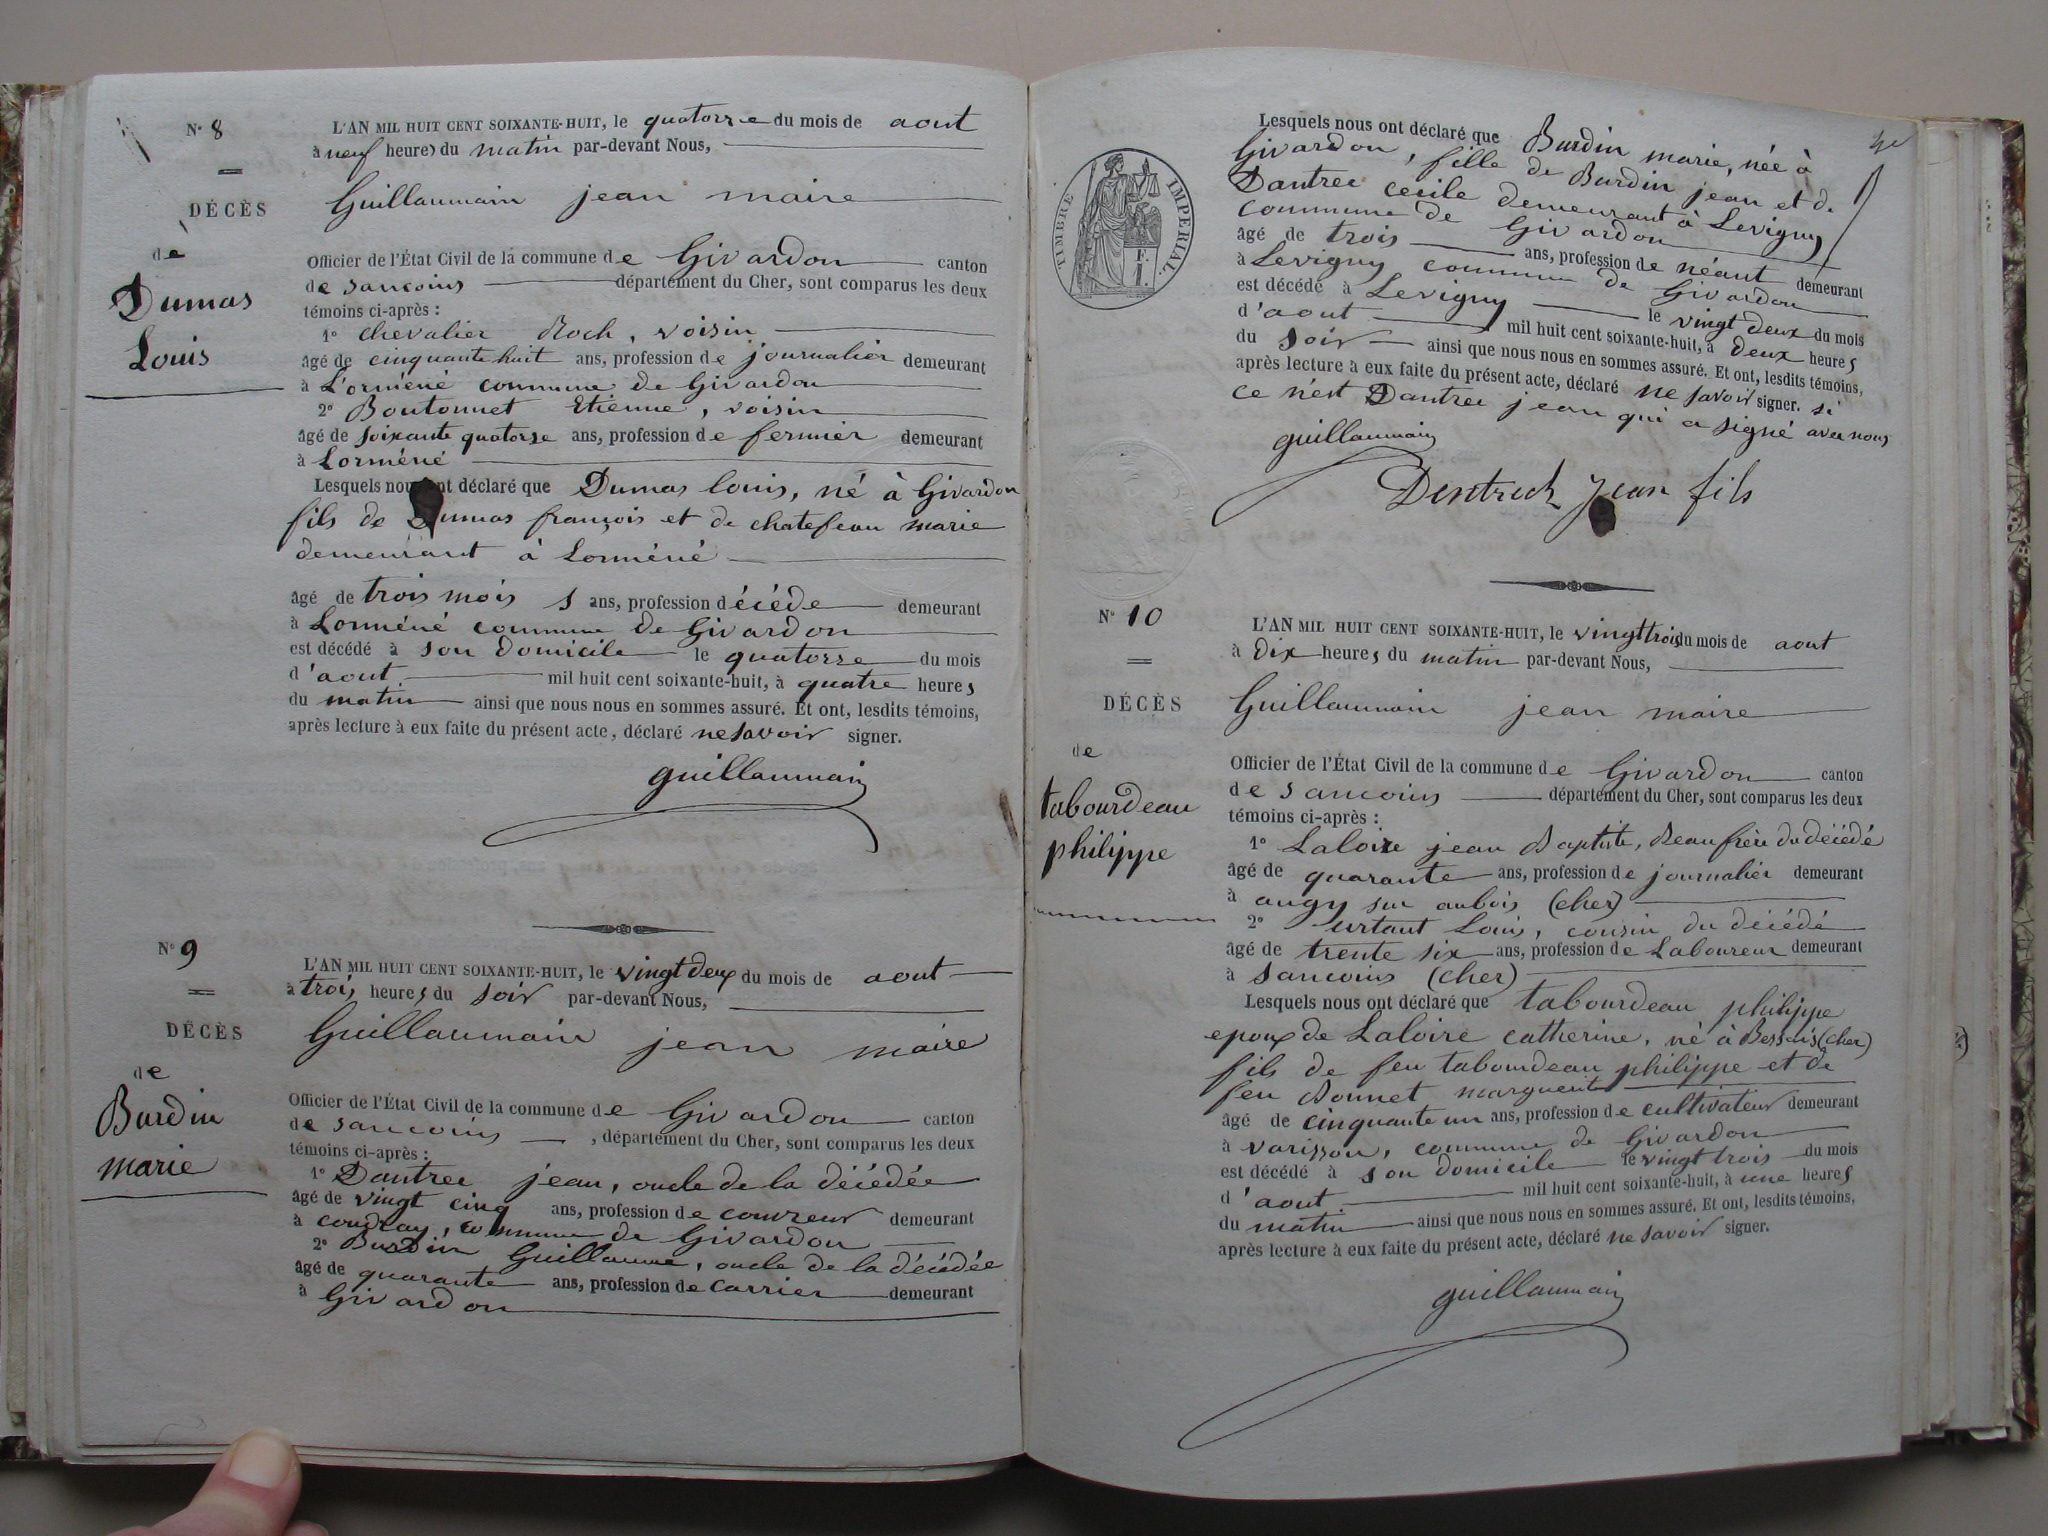 N° 8
DÉCÈS
de
Dumas
Louis
L'AN MIL HUIT CENT SOIXANTE-HUIT, le quatorze du mois de aout
à neuf heures du matin par-devant Nous,
Guillaumain jean maire
Officier de l'État Civil de la commune de Givardon canton
de sancoins département du Cher, sont comparus les deux
témoins ci-après :
1° chevalier Roch, voisin
âgé de cinquante huit ans, profession de journalier demeurant
à L'orméné commune de Givardon
2° Boutonnet Etienne, voisin
âgé de soixante quatorze ans, profession de fermier demeurant
à Lorméné
Lesquels nous ont déclaré que Dumas louis, né à Givardon
fils de Dumas françois et de chatefeau marie
demeurant à Lorméné
âgé de trois mois s ans, profession décéde demeurant
à Lorméné commune de Givardon
est décédé à son domicile le quatorze du mois
d'aout mil huit cent soixante-huit, à quatre heures
du matin ainsi que nous nous en sommes assuré. Et ont, lesdits témoins,
après lecture à eux faite du présent acte, déclaré ne savoir signer.
guillaumain
N° 9
DÉCÈS
de
Burdin
marie
L'AN MIL HUIT CENT SOIXANTE-HUIT, le vingt deux du mois de aout
à trois heures du soir par-devant Nous,
Guillaumain jean maire
Officier de l'État Civil de la commune de Givardon canton
de sancoins, département du Cher, sont comparus les deux
témoins ci-après :
1° Dantrec jean, oncle de la décédée
âgé de vingt cinq ans, profession de couvreur demeurant
à coudray, commune de Givardon
2° Burdin Guillaume, oncle de la décédée
âgé de quarante ans, profession de carrier demeurant
à Givardon
TIMBRE IMPÉRIAL.
Lesquels nous ont déclaré que Burdin marie, née à
Givardon, fille de Burdin jean et de
Dantrec cecile demeurant à Levigny
commune de Givardon
âgé de trois ans, profession de néant demeurant
à Levigny commune de Givardon
est décédé à Levigny le vingt deux du mois
d'aout mil huit cent soixante-huit, à deux heures
du soir ainsi que nous nous en sommes assuré. Et ont, lesdits témoins,
après lecture à eux faite du présent acte, déclaré ne savoir signer. si
ce n'est Dantrec jean qui a signé avec nous
guillaumain
Dentrech jean fils
N° 10
DÉCÈS
de
tabourdeau
philippe
L'AN MIL HUIT CENT SOIXANTE-HUIT, le vingt trois du mois de aout
à dix heures du matin par-devant Nous,
Guillaumain jean maire
Officier de l'État Civil de la commune de Givardon canton
de sancoins département du Cher, sont comparus les deux
témoins ci-après :
1° Laloire jean Baptiste, Beaufrère du décédé
âgé de quarante ans, profession de journalier demeurant
à augy sur aubois (cher)
2° Louis, cousin du décédé
âgé de trente six ans, profession de Laboureur demeurant
à sancoins (cher)
Lesquels nous ont déclaré que tabourdeau philippe
epoux de Laloire catherine, né à Bessais (cher)
fils de feu tabourdeau philippe et de
feu Bonnet marguerite
âgé de cinquante un ans, profession de cultivateur demeurant
à varisson, commune de Givardon
est décédé à son domicile le vingt trois du mois
d'aout mil huit cent soixante-huit, à une heures
du matin ainsi que nous nous en sommes assuré. Et ont, lesdits témoins,
après lecture à eux faite du présent acte, déclaré ne savoir signer.
guillaumain